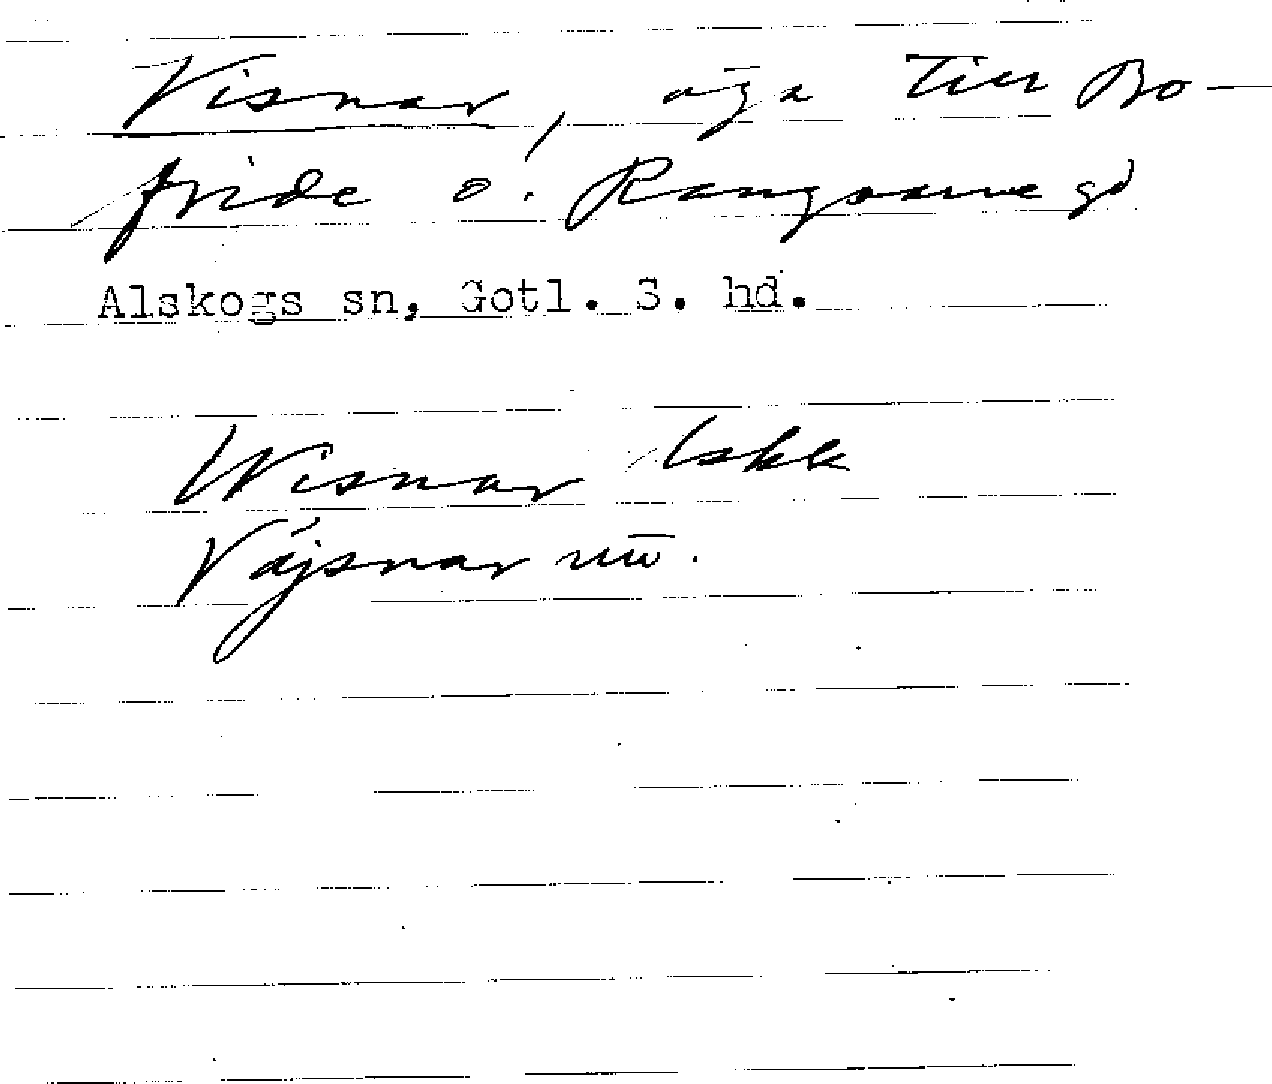 Visnar, äga till Bo-
fride o. Rangsarve gd
Alskogs sn, Gotl. S. hd.
Wisnar lskk
Väjsnar